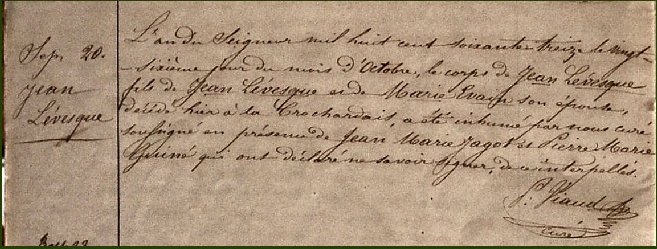 Sep. 20.
Jean
Lévesque
L'an du Seigneur mil huit cent soixante treize le vingt-
-sixième jour du mois d'Octobre, le corps de Jean Lévesque
fils de Jean Lévesque et de Marie Evain son épouse,
décédé hier à la Crochardais, a été inhumé par nous curé
soussigné en présence de Jean Marie Jagot et Pierre Marie
qui ont déclaré ne savoir signer, de ce interpellés.
P. Viaud
curé